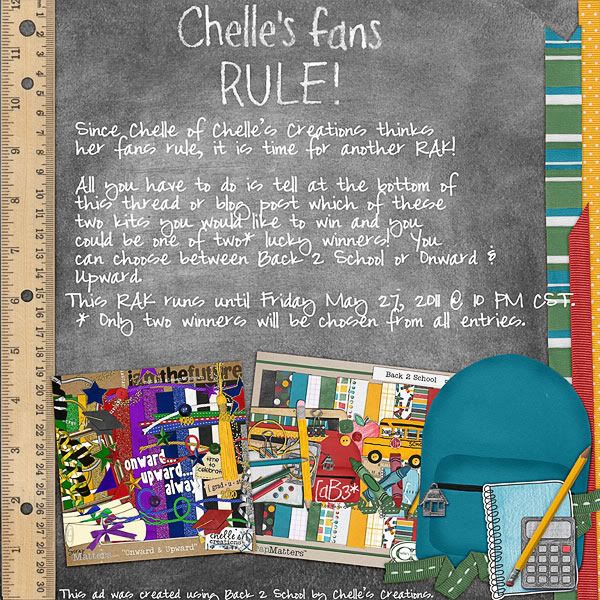 Chelle's fans
RULE!
Since Chelle of Chelle's Creations thinks
her fans rule, it is time for another RAK!
All you have to do is tell at the bottom of
this thread or blog post which of these
two kits you would like to win and you
could be one of two* lucky winners! You
can choose between Back 2 School or Onward &
Upward.
This RAK runs until Friday May 27, 2011 @ 10 PM CST.
* Only two winners will be chosen from all entries.
thefuture
Back 2 School
onward...
upward...
always
time to
celebrate
{ grad·u
aB3*
Matters... "Onward & Upward"
chelle's
creations
Matters"
This ad was created using Back 2 School by Chelle's Creations.